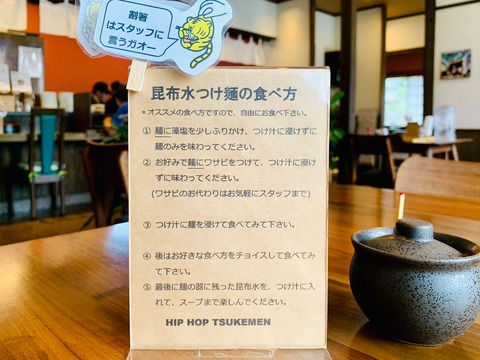 割箸
はスタッフに
言うガオー
昆布水つけ麺の食べ方
*オススメの食べ方ですので、自由にお食べ下さい。
① 麺に藻塩を少しふりかけ、つけ汁に浸けずに
麺のみを味わってください。
② お好みで麺にワサビをつけて、つけ汁に浸け
ずに味わってください。
(ワサビのお代わりはお気軽にスタッフまで)
③ つけ汁に麺を浸けて食べてみて下さい。
④ 後はお好きな食べ方をチョイスして食べてみ
て下さい。
⑤ 最後に麺の器に残った昆布水を、つけ汁に入
れて、スープまで楽しんでください。
HIP HOP TSUKEMEN